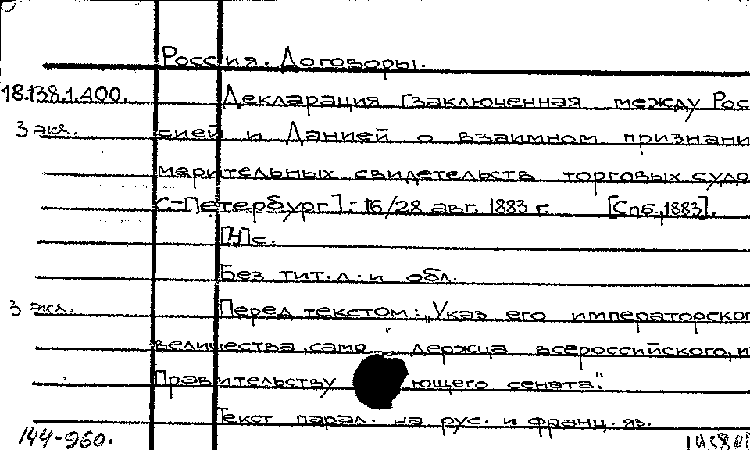 Россия. Договоры.
18.138.1.400. Декларация [заключенная между Рос
3 экз. сией и Данией о взаимном признани
мерительных свидетельств торговых судо
С-Петербург]. 16/28 авг. 1883 г. [Спб., 1883].
[4] с.
Без тит. л. и обл.
3 экз. Перед текстом: "Указ его императорског
величества, само держца всероссийского, и
Правительству ющего сената."
Текст парал. на рус. и франц. яз.
144-960.